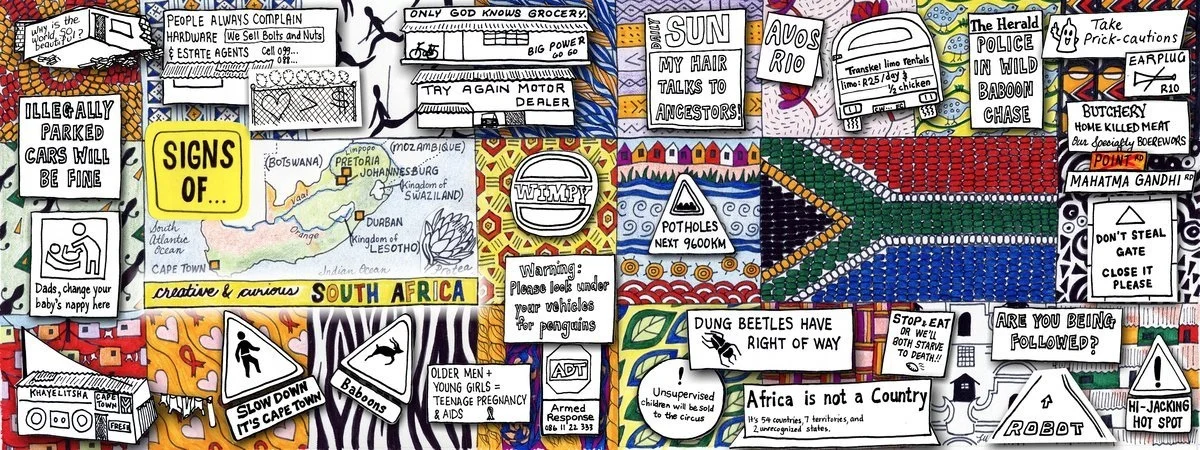 why is the
world so
beautiful?
PEOPLE ALWAYS COMPLAIN
HARDWARE We Sell Bolts and Nuts
& ESTATE AGENTS Cell 099...
088...
ONLY GOD KNOWS GROCERY.
BIG POWER
GO GO
TRY AGAIN MOTOR
DEALER
DAILY
SUN
MY HAIR
TALKS TO
ANCESTORS!
AVOS
RIO
Transkei limo rentals
limo: R25/day &
1/2 chicken
The Herald
POLICE
IN WILD
BABOON
CHASE
Take
Prick-cautions
EARPLUG
R10
BUTCHERY
HOME KILLED MEAT
Our Specialty BOEREWORS
POINT RD
MAHATMA GANDHI RD
ILLEGALLY
PARKED
CARS WILL
BE FINE
SIGNS
OF...
(BOTSWANA)
Limpopo
(MOZAMBIQUE)
PRETORIA
JOHANNESBURG
(Kingdom of
SWAZILAND)
Vaal
DURBAN
Orange
(Kingdom of
LESOTHO)
South
Atlantic
Ocean
CAPE TOWN
Indian Ocean
Protea
creative & curious SOUTH AFRICA
WIMPY
POTHOLES
NEXT 9600KM
DON'T STEAL
GATE
CLOSE IT
PLEASE
Dads, change your
baby's nappy here
Warning:
Please look under
your vehicles
for penguins
KHAYELITSHA
CAPE
TOWN
FREE
SLOW DOWN
IT'S CAPE TOWN
Baboons
OLDER MEN +
YOUNG GIRLS =
TEENAGE PREGNANCY
& AIDS
ADT
Armed
Response
086 11 22 333
DUNG BEETLES HAVE
RIGHT OF WAY
STOP & EAT
OR WE'LL
BOTH STARVE
TO DEATH!!
ARE YOU BEING
FOLLOWED?
!
Unsupervised
children will be sold
to the circus
Africa is not a Country
It's 54 countries, 7 territories, and
2 unrecognized states.
ROBOT
!
HI-JACKING
HOT SPOT